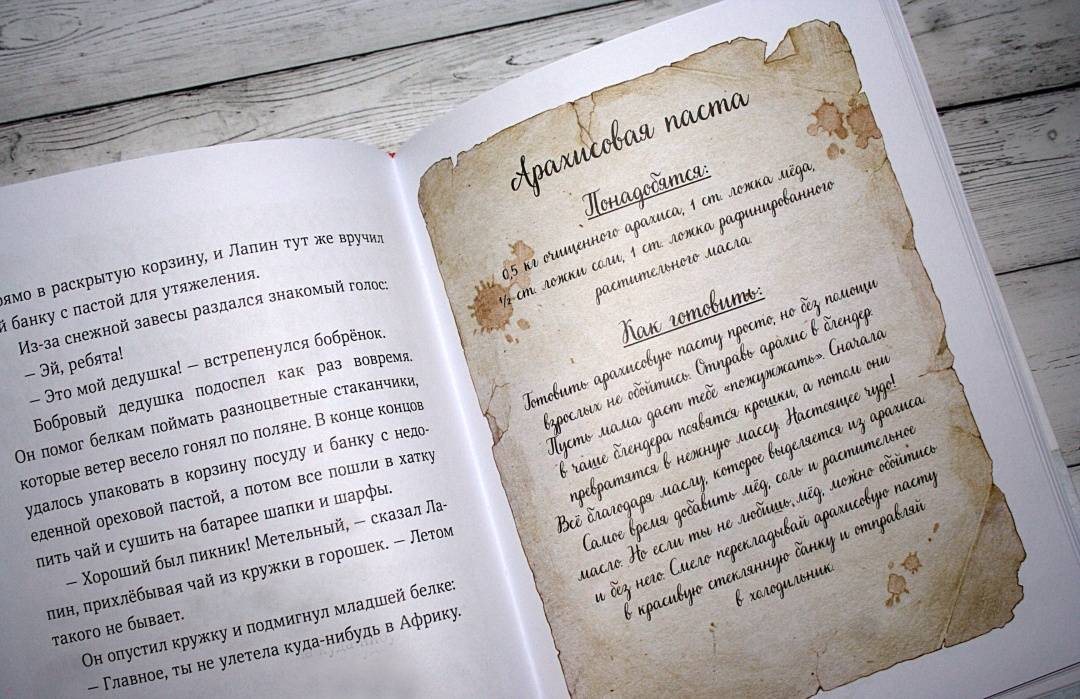 рямо в раскрытую корзину, и Лапин тут же вручил
й банку с пастой для утяжеления.
Из-за снежной завесы раздался знакомый голос:
– Эй, ребята!
– Это мой дедушка! – встрепенулся бобрёнок.
Бобровый дедушка подоспел как раз вовремя.
Он помог белкам поймать разноцветные стаканчики,
которые ветер весело гонял по поляне. В конце концов
удалось упаковать в корзину посуду и банку с недо-
еденной ореховой пастой, а потом все пошли в хатку
пить чай и сушить на батарее шапки и шарфы.
– Хороший был пикник! Метельный, – сказал Ла-
пин, прихлёбывая чай из кружки в горошек. – Летом
такого не бывает.
Он опустил кружку и подмигнул младшей белке:
– Главное, ты не улетела куда-нибудь в Африку.
Арахисовая паста
Понадобятся:
0,5 кг очищенного арахиса, 1 ст. ложка мёда,
½ ст. ложки соли, 1 ст. ложка рафинированного
растительного масла.
Как готовить:
Готовить арахисовую пасту просто, но без помощи
взрослых не обойтись. Отправь арахис в блендер.
Пусть мама даст тебе «пожужжать». Сначала
в чаше блендера появятся крошки, а потом они
превратятся в нежную массу. Настоящее чудо!
Всё благодаря маслу, которое выделяется из арахиса.
Самое время добавить мёд, соль и растительное
масло. Но если ты не любишь мёд, можно обойтись
и без него. Смело перекладывай арахисовую пасту
в красивую стеклянную банку и отправляй
в холодильник.